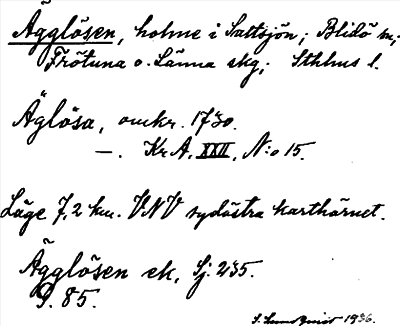 Ägglösen, holme i Saltsjön; Blidö sn;
Frötuna o. Länna skg; Sthlms l.
Äglösa, omkr. 1730.
—. Kr.A. XXII, N:o 15.
Läge 7,2 km. VNV sydöstra karthörnet.
Ägglösen ek, Sj. 235.
S. 85.
S. Lundqvist 1936.